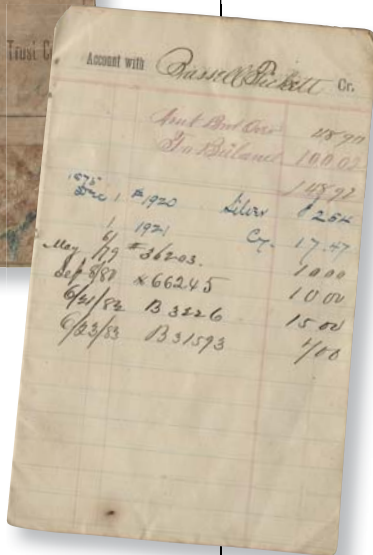 Trust C
Account with Russell Pickett Cr.
48 90
To Balance 100.02
148 92
1875
Dec 1 #1920 Silver
1 1921 Cy. 17.47
May 6/79 #36203. 10 00
Sep 8/80 x66245 10 00
6/21/82 B 3226 15 00
6/23/83 B31593 4/00